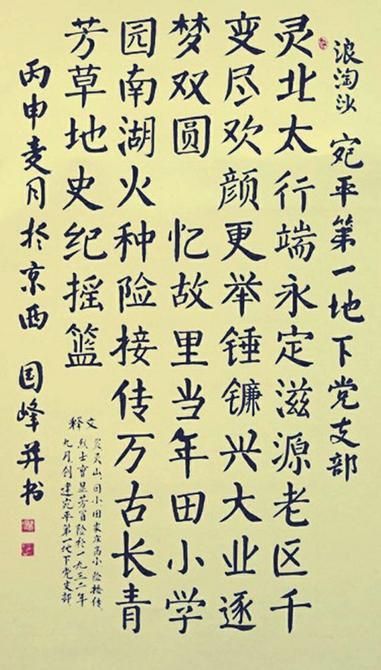 浪淘沙 宛平第一地下党支部
灵北太行端永定滋源老区千
变尽欢颜更举锤镰兴大业逐
梦双圆 忆故里当年田小学
园南湖火种险接传万古长青
芳草地史纪摇篮
释文
灵灵山、田小田家庄高小险接传、
烈士显芳冒险於一九三二年
九月创建宛平第一地下党支部
丙申麦月於京西 国峰并书